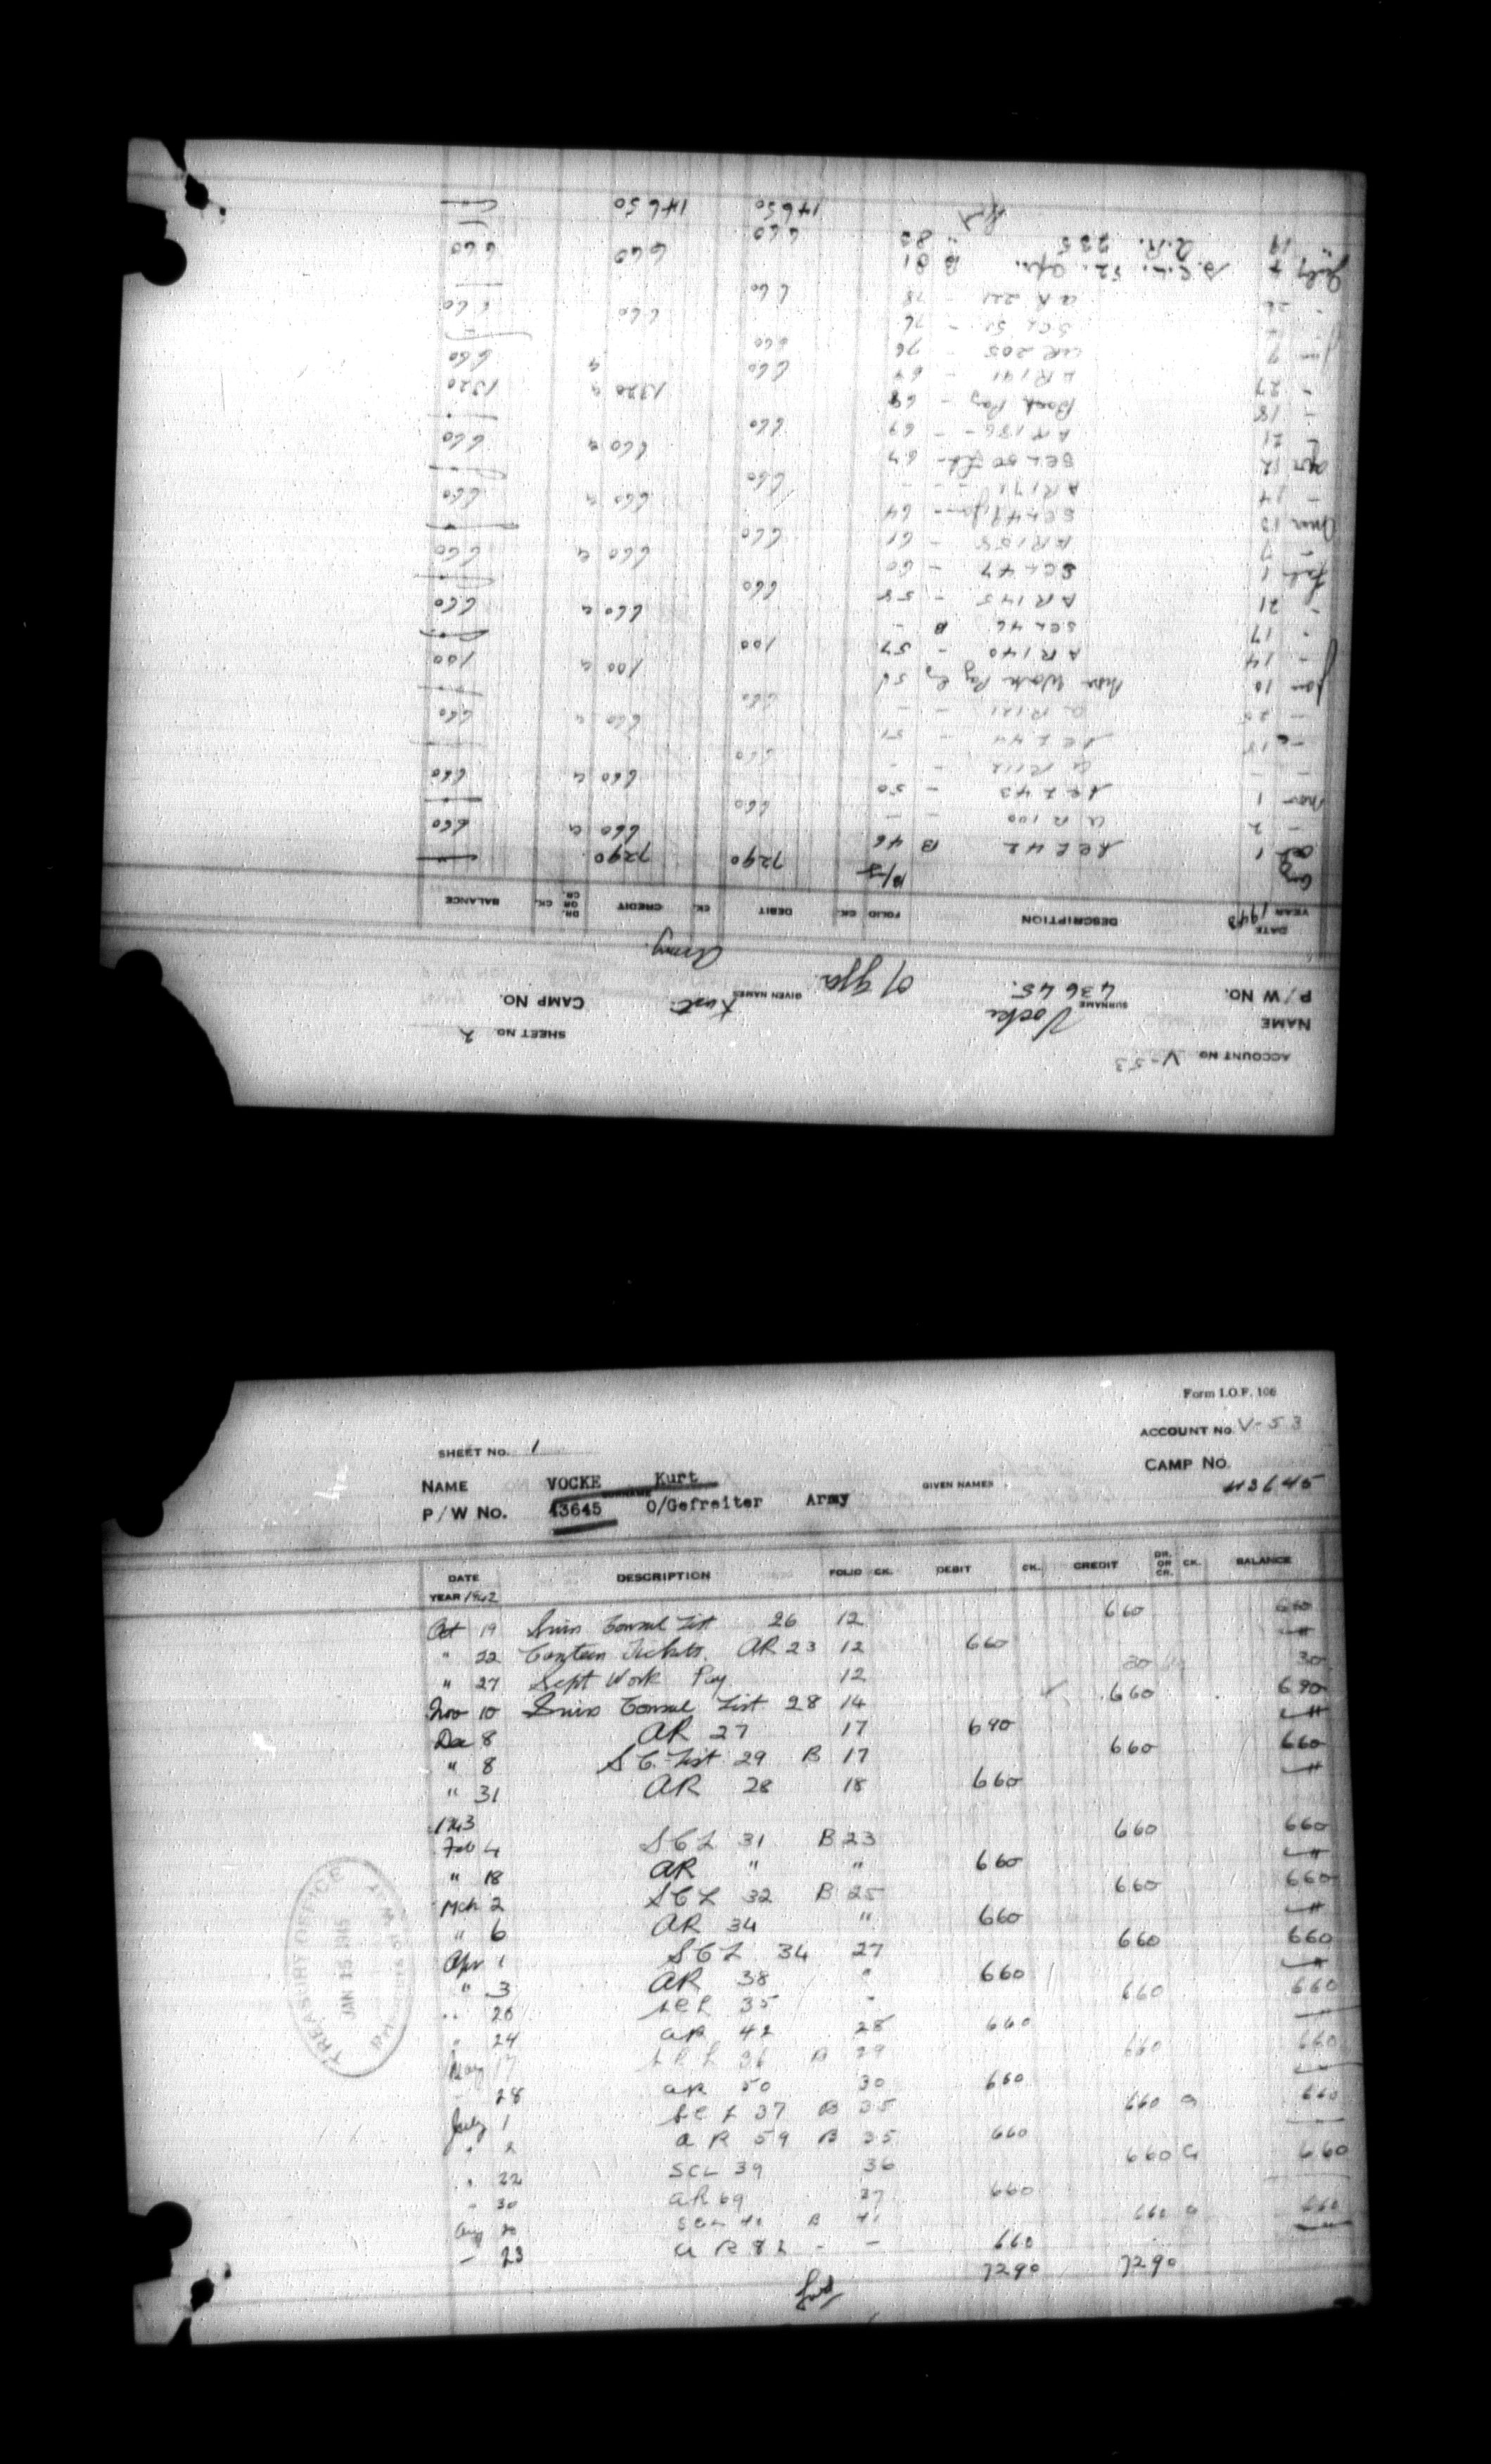 ACCOUNT NO V-53
SHEET NO. 2
NAME Vocke SURNAME Kurt GIVEN NAMES
P/W NO. 43645. O/Gfr. Army. CAMP NO.
DATE YEAR 1943 DESCRIPTION FOLIO CK. DEBIT CK. CREDIT DR. OR CR. CK. BALANCE
7290 7290
Oct 1 SCL 42 B 46 660 660
- 2 AR 100 - - 660
Nov 1 SCL 43 - 50 660 660
- - AR 112 - - 660
- 15 SCL 44 - 51 660 660
- 25 AR 121 - - 660
Jan 10 Work Pay 100 100
- 14 AR 140 - 57 100
- 17 SCL 46 B - 660 660
- 21 AR 145 - 58 660
Feb 1 SCL 47 - 60 660 660
- 7 AR 158 - 61 660
Mar 13 SCL 49 Jan - 64 660 660
- 14 AR 171 - - 660
Apr 12 SCL 50 Feb - 67 660 660
- 21 AR 186 - - 69 660
- 18 Back Pay - 68 1320 1320
- 27 AR 191 - 69 660 660
7 AR 205 - 76 660
SCL 51 - 76 660 660
26 AR 221 - 78 660
July 4 S.C.L. 52. Apr. B 81 660 660
" 19 A.R. 235 " 83 660
14650 14650
Form I.O.F. 106
SHEET NO. 1 ACCOUNT NO. V-53
NAME VOCKE Kurt SURNAME GIVEN NAMES CAMP NO.
P/W No. 43645 O/Gefreiter Army 43645
DATE YEAR 1942 DESCRIPTION FOLIO CK. DEBIT CK. CREDIT DR. OR CR. CK. BALANCE
Oct 19 Swiss Consul List 26 12 660 660
" 22 Canteen Tickets. AR 23 12 660
" 27 Sept Work Pay 12 30 30
Nov 10 Swiss Consul List 28 14 660 690
Dec 8 AR 27 17 690
" 8 S C. List 29 B 17 660 660
" 31 AR 28 18 660
1943
Feb 4 SCL 31 B 23 660 660
" 18 AR " " 660
Mch 2 SCL 32 B 25 660 660
" 6 AR 34 " 660
Apr 1 SCL 34 27 660 660
" 3 AR 38 " 660
" 20 SCL 35 " 660 660
" 24 AR 42 28 660
May 17 SCL 36 B 29 660 660
28 AR 50 30 660
July 1 SCL 37 B 35 660 a 660
" 2 AR 59 B 35 660
" 22 SCL 39 36 660 a 660
" 30 AR 69 37 660
Aug 20 SCL 41 B 41 660 a 660
- 23 AR 82 - - 660
7290 7290
TREASURY OFFICE
JAN 15 1945
PRISONERS OF WAR